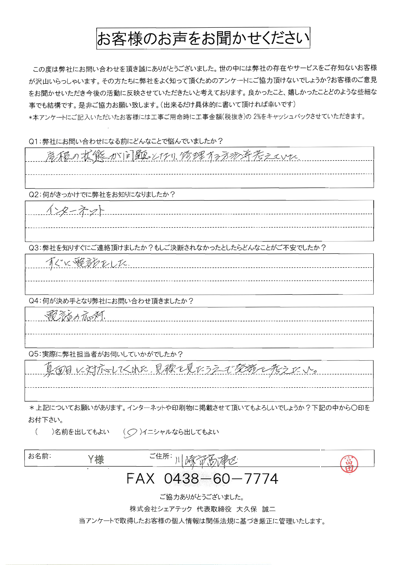 お客様のお声をお聞かせください
この度は弊社にお問い合わせを頂き誠にありがとうございました。世の中には弊社の存在やサービスをご存知ないお客様
が沢山いらっしゃいます。その方たちに弊社をよく知って頂くためのアンケートにご協力頂けないでしょうか？お客様のご意見
をお聞かせいただき今後の活動に反映させていただきたいと考えております。良かったこと、嬉しかったことどのような些細な
事でも結構です。是非ご協力お願い致します。（出来るだけ具体的に書いて頂ければ幸いです）
*本アンケートにご記入いただいたお客様には工事ご用命時に工事金額（税抜き）の2%をキャッシュバックさせていただきます。
Q1：弊社にお問い合わせになる前にどんなことで悩んでいましたか？
屋根の状態が問題となり、修理する方法等考えていた。
Q2：何がきっかけでに弊社をお知りになりましたか？
インターネット
Q3：弊社を知りすぐにご連絡頂けましたか？もしご決断されなかったとしたらどんなことがご不安でしたか？
すぐに電話をした
Q4：何が決め手となり弊社にお問い合わせ頂きましたか？
電話の応対
Q5：実際に弊社担当者がお伺いしていかがでしたか？
真面目に対応してくれた。見積を見たうえで発注を考えたい。
＊上記についてお願いがあります。インターネットや印刷物に掲載させて頂いてもよろしいでしょうか？下記の中から〇印を
お付下さい。
（ ）名前を出してもよい （〇）イニシャルなら出してもよい
お名前： Y様 ご住所： 川崎市高津区
FAX 0438-60-7774
ご協力ありがとうございました。
株式会社シェアテック 代表取締役 大久保 誠二
当アンケートで取得したお客様の個人情報は関係法規に基づき厳正に管理いたします。